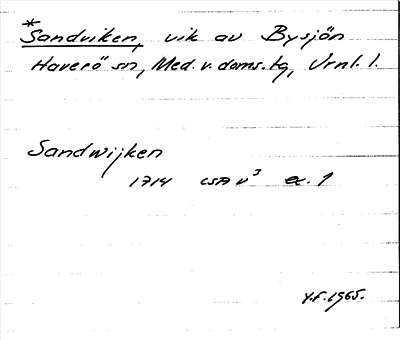 *Sandviken, vik av Bysjön
Haverö sn, Med. v. doms. tg, Vrnl. l.
Sandwijken
1714 LSA V³ ex. 1
Y.F. 1965.